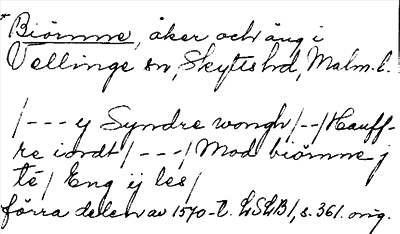 * Biömme, åker och äng i
Vellinge sn, Skyts hd, Malm. l.
/--- y Syndre wongh /--/ Hauff-
re iordt /---/ Mod biömme j
té / Eng ij les /
förra delen av 1570-t. LSLB1, s. 361. orig.